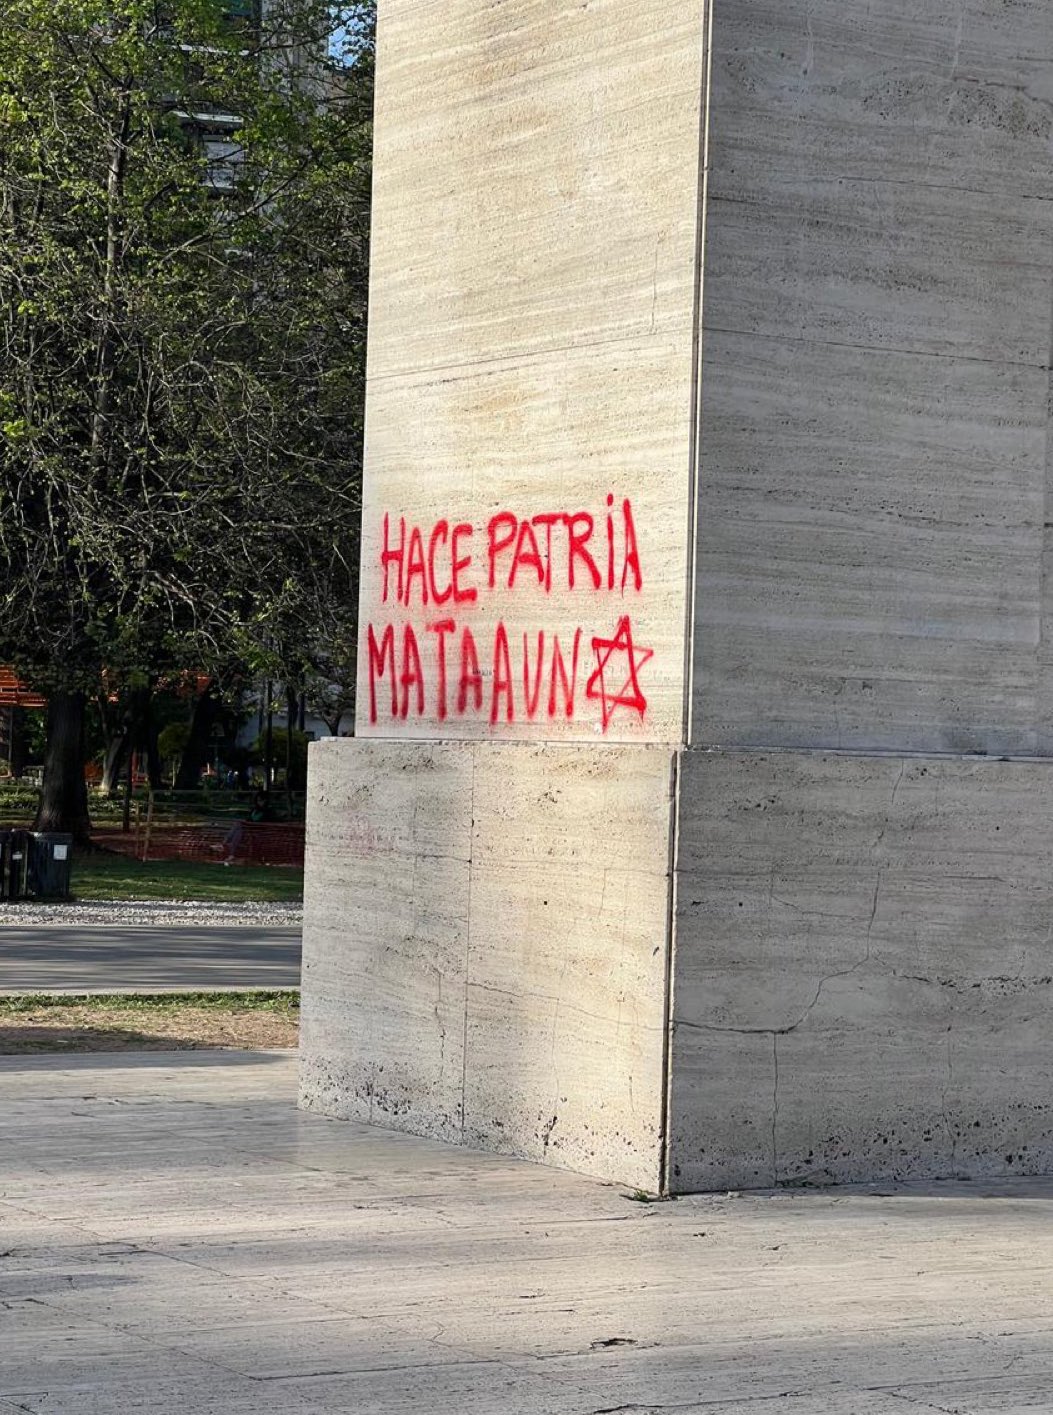 HACE PATRiA
MATA A UN ✡